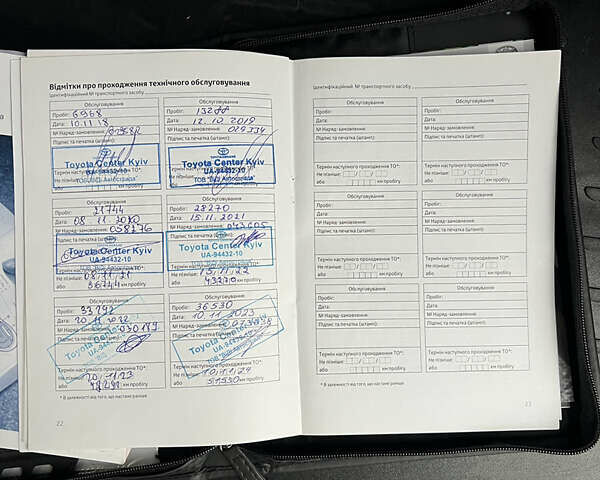 Відмітки про проходження технічного обслуговування
Ідентифікаційний № транспортного засобу
Обслуговування
Пробіг: 6968
Дата: 10.11.18
№ Наряд-замовлення:
Підпис та печатка (штамп):
Toyota Center Kyiv
UA-94432-10
Термін наступного проходження ТО*:
Не пізніше:
або км пробігу
Обслуговування
Пробіг: 13288
Дата: 12.10.2019
№ Наряд-замовлення: 029334
Підпис та печатка (штамп):
Toyota Center Kyiv
UA-94432-10
ТОВ "ВІДІ Автострада"
Не пізніше:
або км пробігу
Обслуговування
Пробіг: 21744
Дата: 08.11.2020
№ Наряд-замовлення: 058276
Підпис та печатка (штамп):
Toyota Center Kyiv
UA-94432-10
Термін наступного проходження ТО*:
Не пізніше: 08.11.21
або 36744 км пробігу
Обслуговування
Пробіг: 28270
Дата: 15.11.2021
№ Наряд-замовлення:
Підпис та печатка (штамп):
Toyota Center Kyiv
UA-94432-10
Термін наступного проходження ТО*:
Не пізніше: 15.11.22
або 43270 км пробігу
Обслуговування
Пробіг:
Дата: 20.11.2022
№ Наряд-замовлення:
Підпис та печатка (штамп):
Toyota Center Kyiv
UA-94432-10
Термін наступного проходження ТО*:
Не пізніше: 20.11.23
або км пробігу
Обслуговування
Пробіг: 36530
Дата: 10.11.2023
№ Наряд-замовлення:
Підпис та печатка (штамп):
Toyota Center Kyiv
UA-94432-10
Термін наступного проходження ТО*:
Не пізніше: 10.11.24
або 51530 км пробігу
* В залежності від того, що настане раніше
22
Ідентифікаційний № транспортного засобу
Обслуговування
Пробіг:
Дата:
№ Наряд-замовлення:
Підпис та печатка (штамп):
Термін наступного проходження ТО*:
Не пізніше:
або км пробігу
Обслуговування
Пробіг:
Дата:
№ Наряд-замовлення:
Підпис та печатка (штамп):
Термін наступного проходження ТО*:
Не пізніше:
або км пробігу
Обслуговування
Пробіг:
Дата:
№ Наряд-замовлення:
Підпис та печатка (штамп):
Термін наступного проходження ТО*:
Не пізніше:
або км пробігу
Обслуговування
Пробіг:
Дата:
№ Наряд-замовлення:
Підпис та печатка (штамп):
Термін наступного проходження ТО*:
Не пізніше:
або км пробігу
Обслуговування
Пробіг:
Дата:
№ Наряд-замовлення:
Підпис та печатка (штамп):
Термін наступного проходження ТО*:
Не пізніше:
або км пробігу
Обслуговування
Пробіг:
Дата:
№ Наряд-замовлення:
Підпис та печатка (штамп):
Термін наступного проходження ТО*:
Не пізніше:
або км пробігу
* В залежності від того, що настане раніше
23